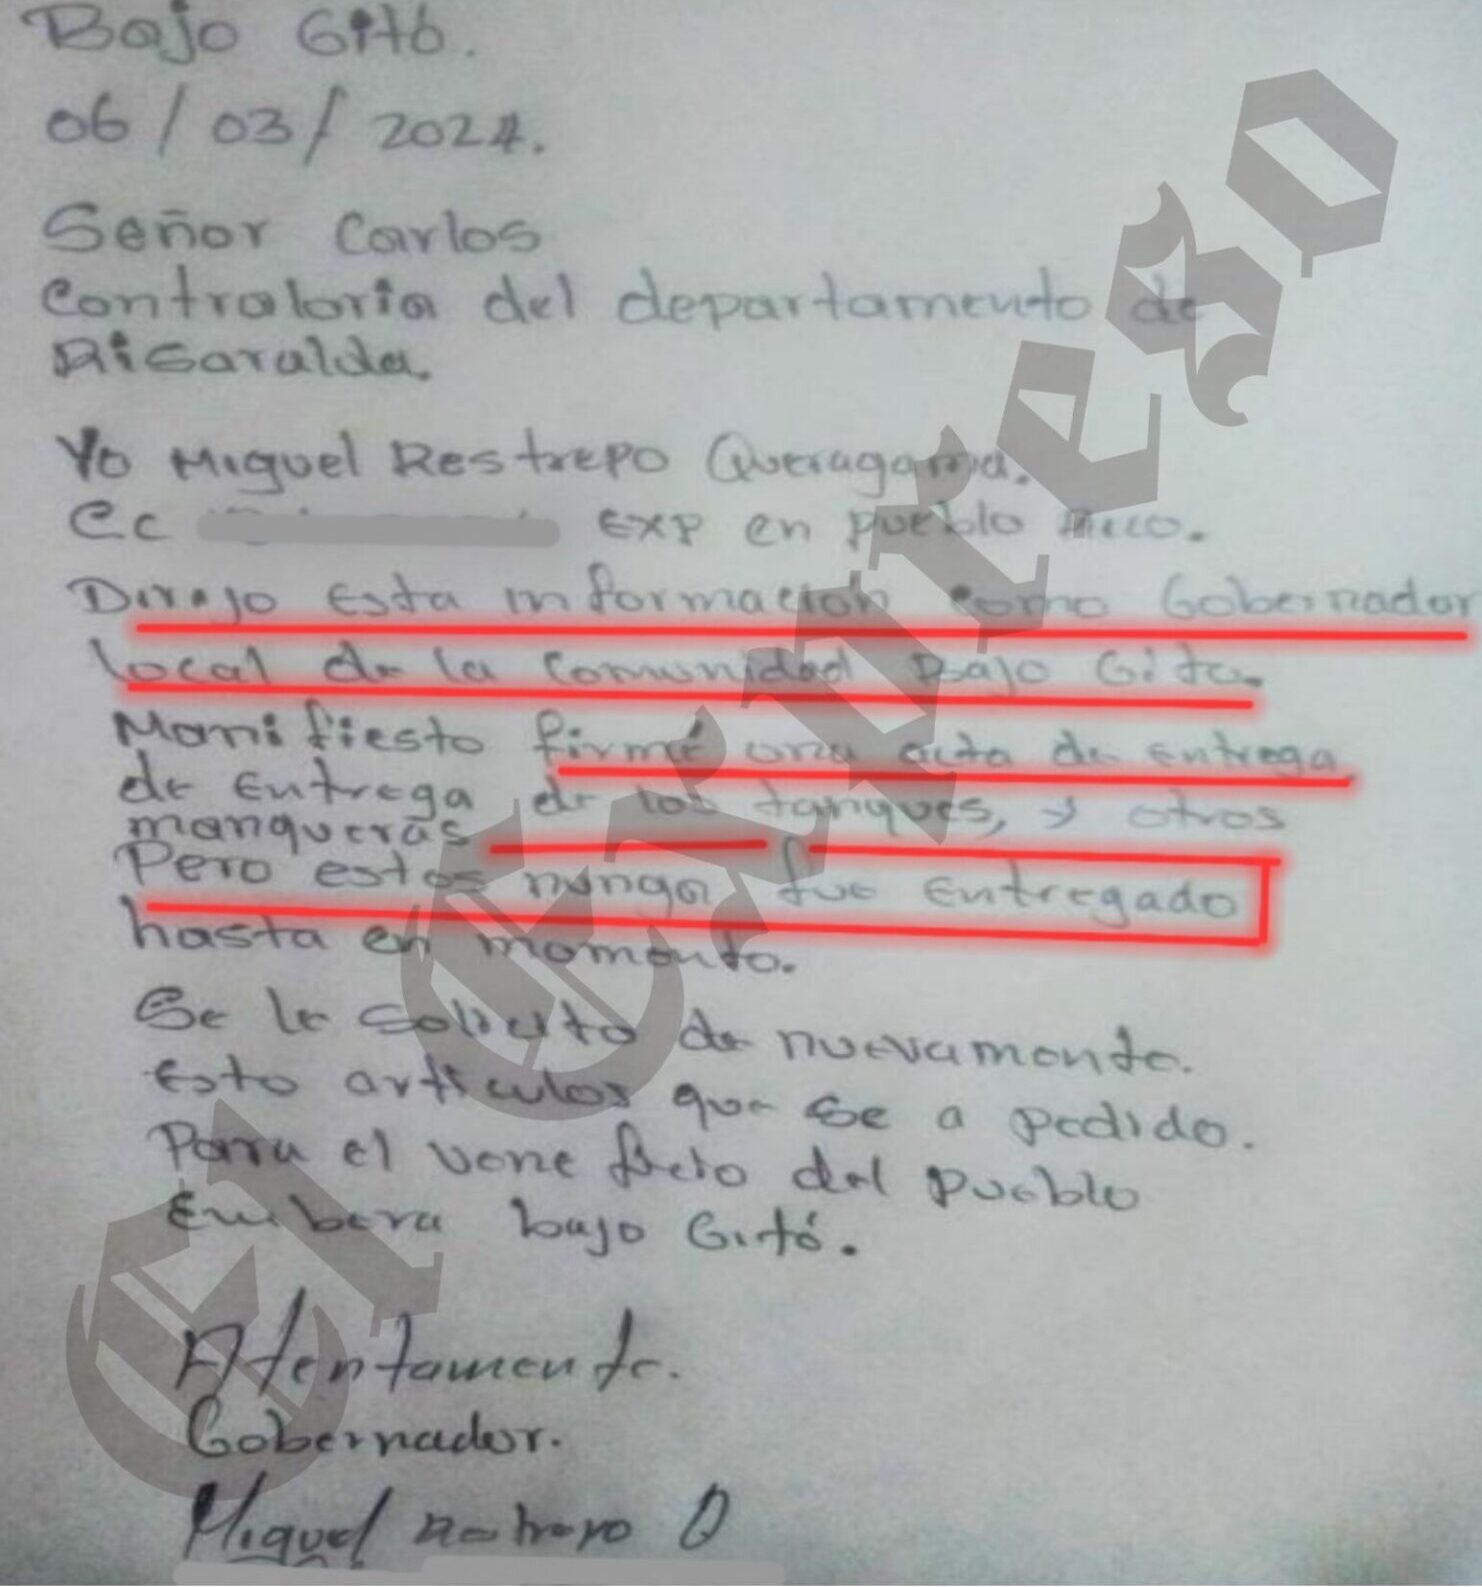 Bajo Gitó.
06/03/2024.
Señor Carlos
Contraloria del departamento de
Risaralda.
Yo Miguel Restrepo Queragama.
Cc EXP en pueblo Rico.
Dirijo Esta informacion como Gobernador
local de la Comunidad Bajo Gito.
Manifiesto firmé una acta de entrega
de Entrega de los tanques, y otros
mangueras
Pero estos nunga fue Entregado
hasta en momento.
Se le solicito de nuevamente.
Esto articulos que se a pedido.
Para el vene ficio del pueblo
Embera bajo Gitó.
Atentamente.
Gobernador.
Miguel Restrepo Q
El Expreso